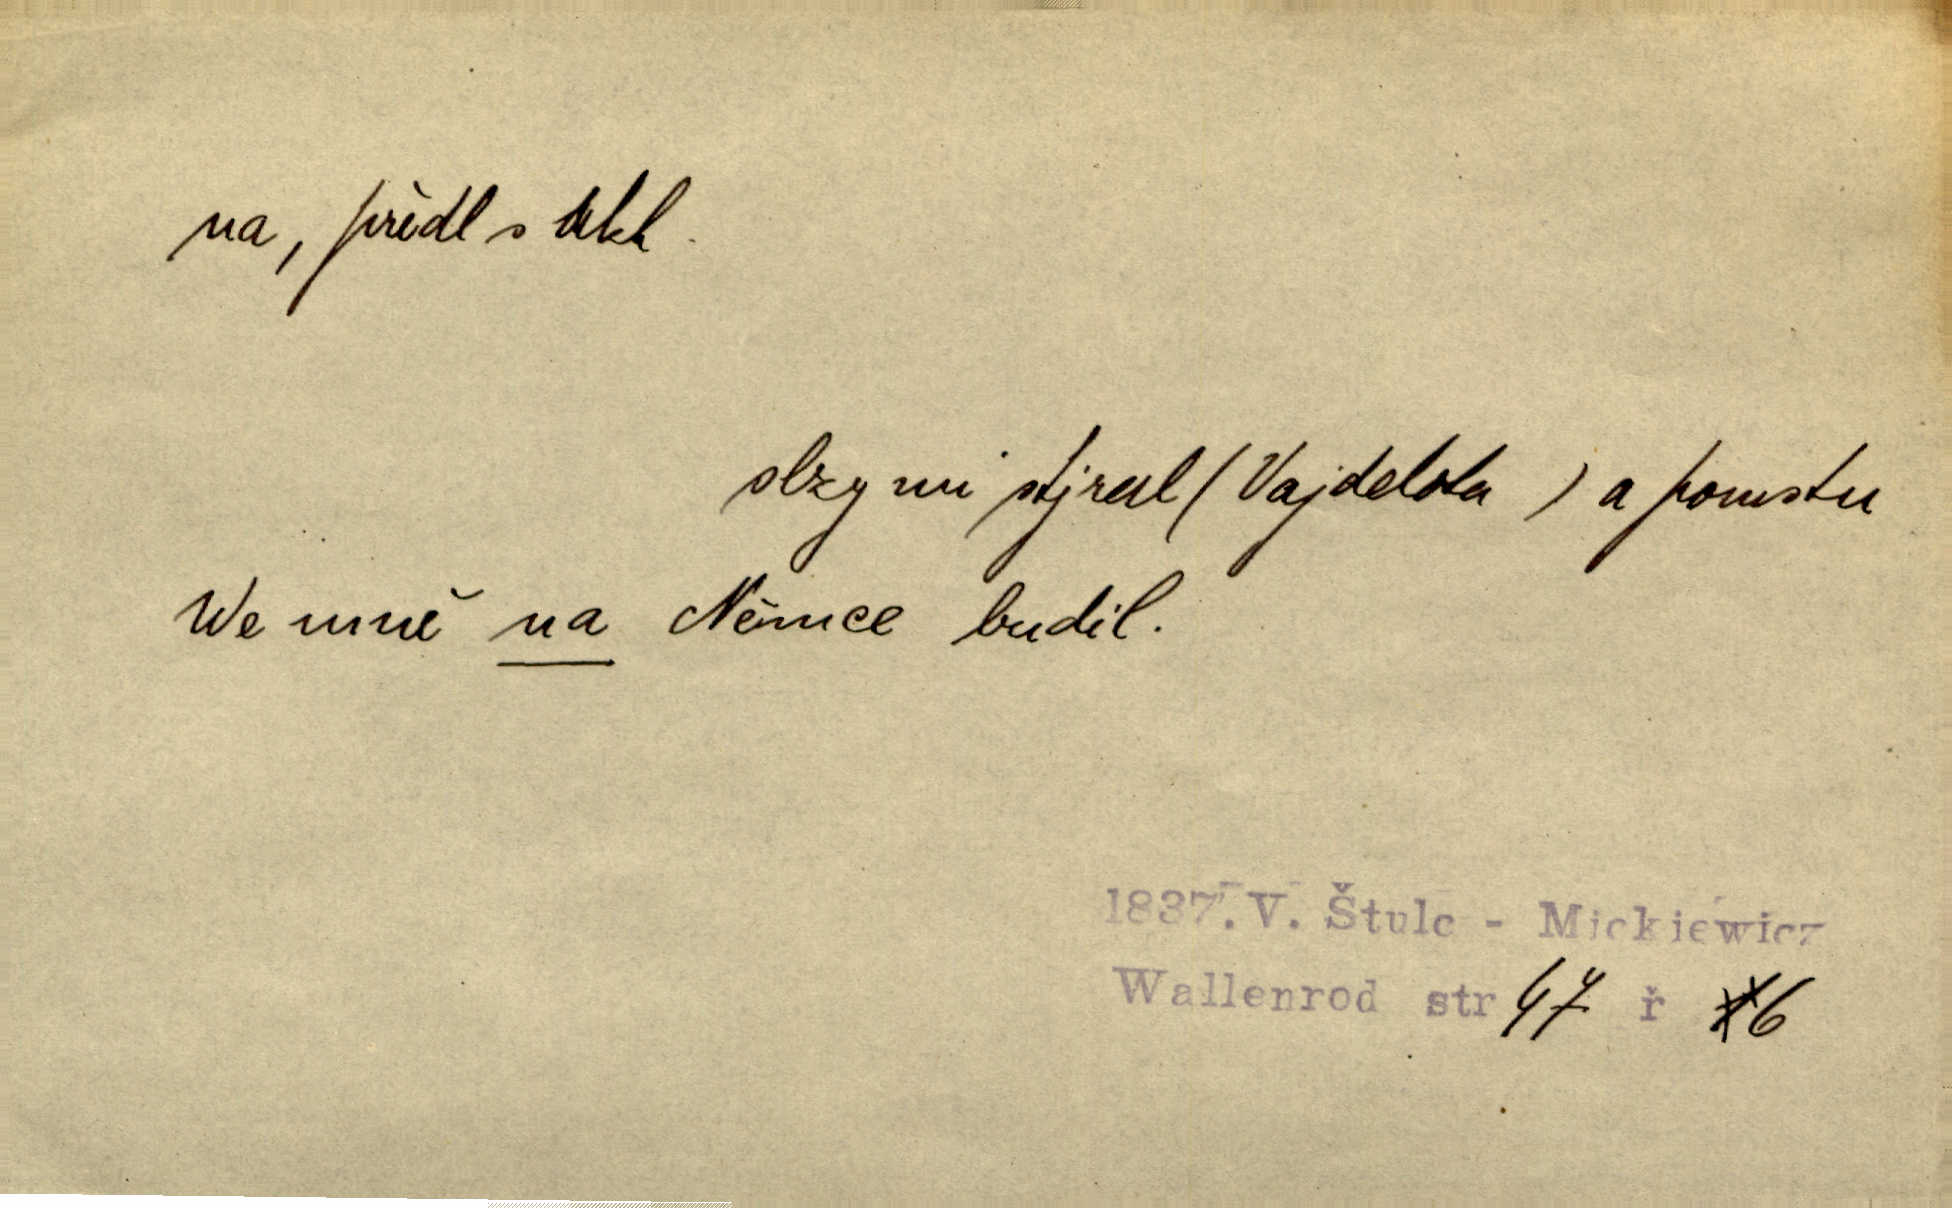 na, předl s akk.
slzy mi stjral (Vajdelota ) a pomstu
We mně na Němce budil.
1837. V. Štulc - Mickiewicz
Wallenrod str 47 ř 6